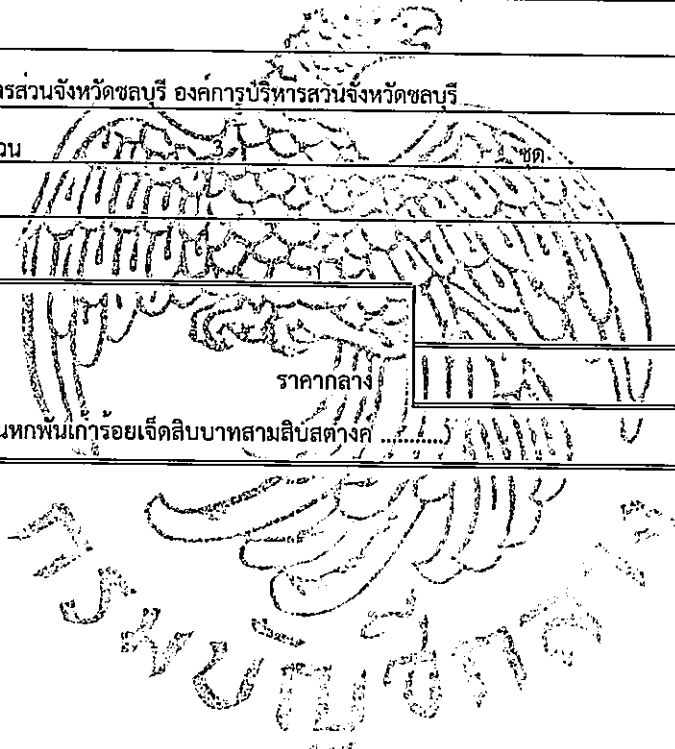 รส่วนจังหวัดชลบุรี องค์การบริหารส่วนจังหวัดชลบุรี
วน 3 ชุด
ราคากลาง
นหกพันเก้าร้อยเจ็ดสิบบาทสามสิบสตางค์ ..........)
กรมบัญชีกลาง